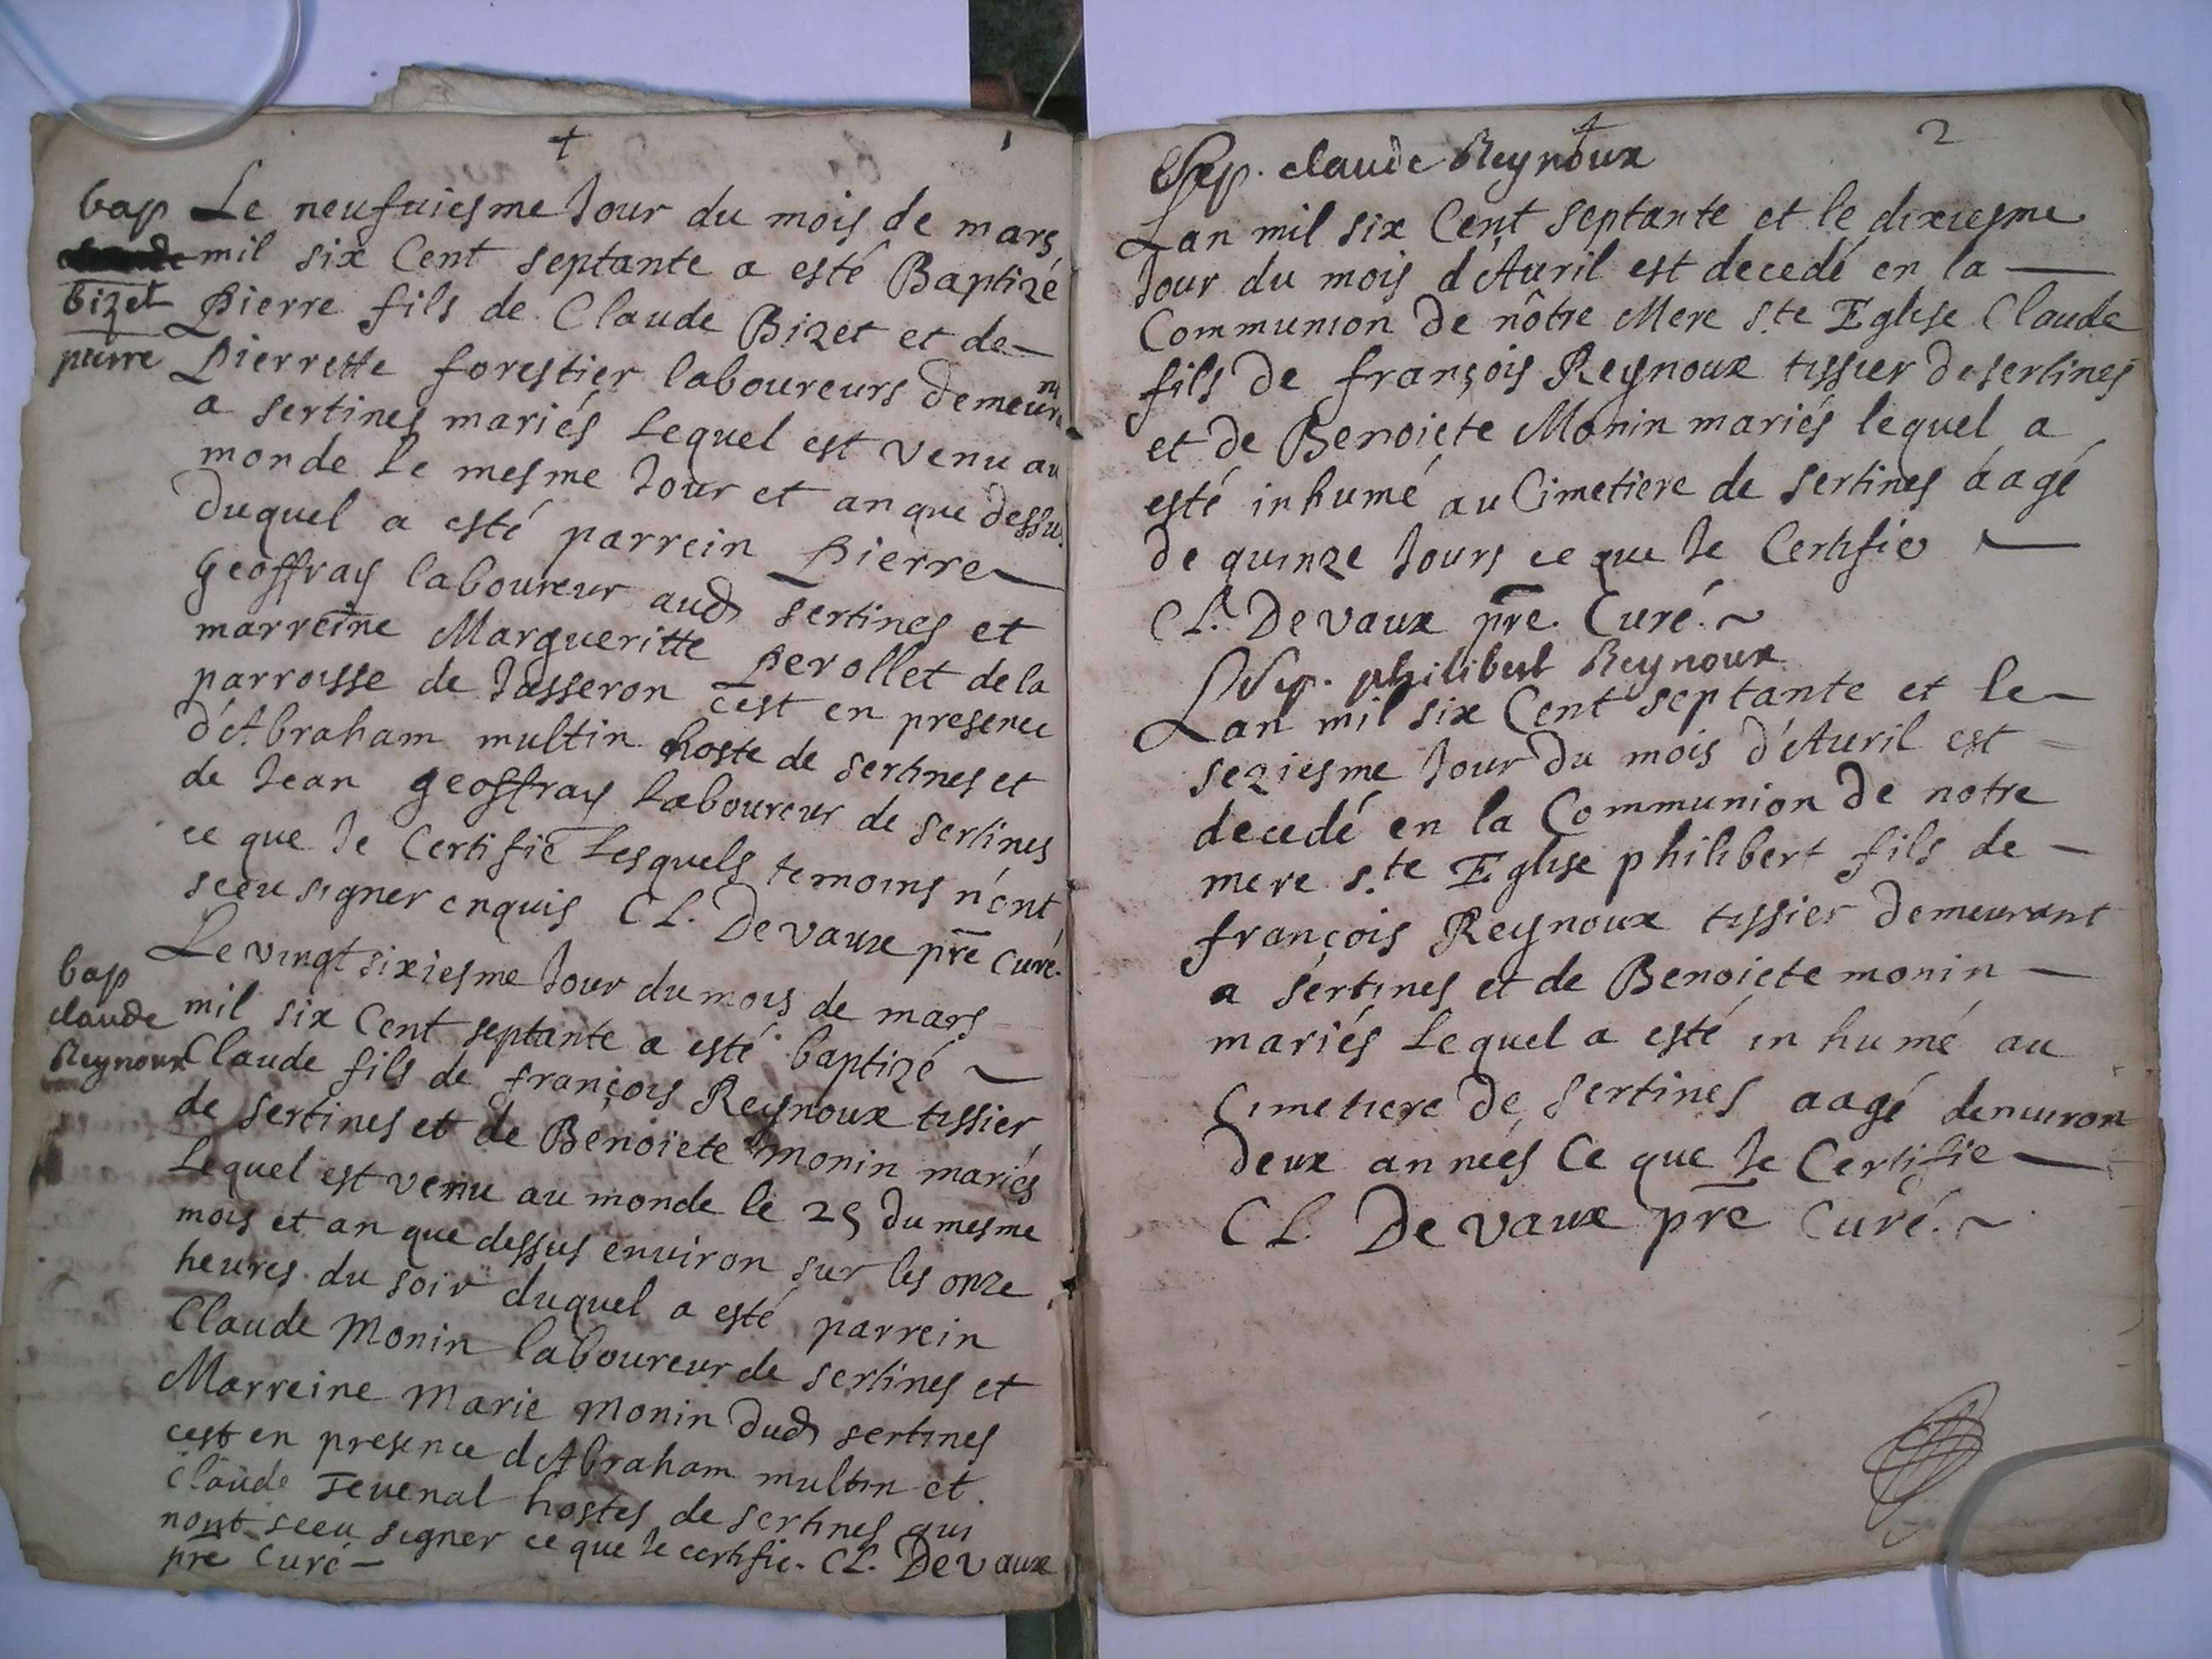 1
bap
bizet
pierre
Le neufuiesme Jour du mois de mars
mil six Cent septante a esté Baptizé
Pierre fils de Claude Bizet et de
Pierrette forestier laboureurs demeurnt
a sertines mariés Lequel est venu au
monde le mesme Jour et an que dessus
duquel a esté parrein Pierre
geoffray laboureur aud sertines et
marreine Margueritte Perollet de la
parroisse de Jasseron cest en presence
d'Abraham multin hoste de sertines et
de Jean geoffray Laboureur de sertines
ce que Je Certifie Lesquels temoins n'ont
sceu signer enquis CL. De vaux pre Curé.
bap
claude
Reynoux
Le vingt sixiesme Jour du mois de mars
mil six Cent septante a esté baptizé
Claude fils de françois Reynoux tissier
de sertines et de Benoicte monin mariés
Lequel est venu au monde le 25 du mesme
mois et an que dessus environ sur les onze
heures du soir duquel a esté parrein
Claude Monin laboureur de sertines et
Marreine Marie Monin dud sertines
cest en presence d'Abraham multin et
Claude Jeuenal hostes de sertines qui
nont sceu signer ce que Je certifie. CL. De vaux
pre Curé
2
Sep. claude Reynoux
Lan mil six Cent septante et le dixiesme
Jour du mois d'Auril est decedé en la
Communion de nôtre Mere s.te Eglise Claude
fils de françois Reynoux tissier de sertines
et de Benoicte Monin mariés lequel a
esté inhumé au Cimetiere de sertines aagé
de quinze Jours ce que Je Certifie
CL. De vaux pre. Curé.
Sep. philibert Reynoux
Lan mil six Cent septante et le
seziesme Jour du mois d'Auril est
decedé en la Communion de notre
mere s.te Eglise philibert fils de
françois Reynoux tissier demeurant
a sertines et de Benoicte monin
mariés Lequel a esté in humé au
Cimetiere de sertines aagé denuiron
deux années Ce que Je Certifie
CL. De vaux pre Curé.